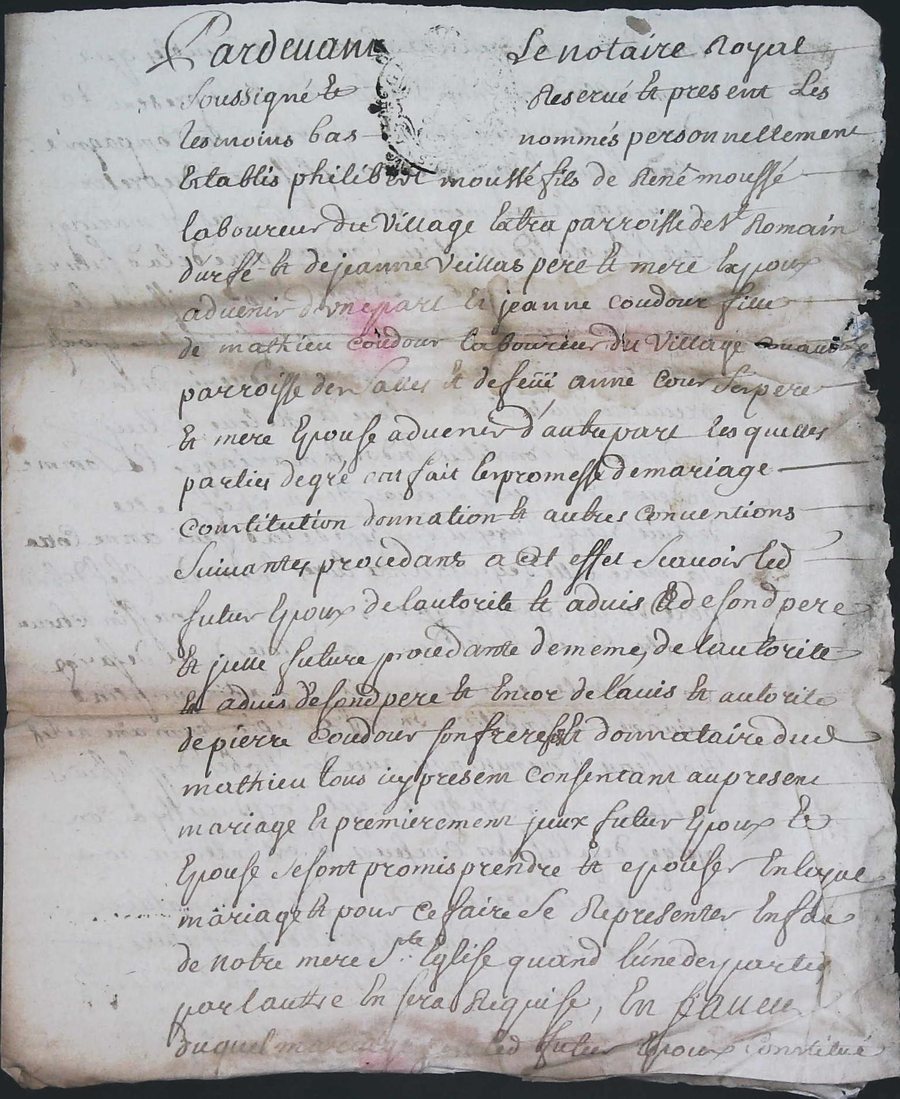 Pardevant Le notaire Royal
Soussigné et Reservé et present Les
tesmoins bas nommés personnellement
Establis philibert moussé fils de René moussé
laboureur du Village et la parroisse de St Romain
durfé et de jeanne Veillas pere et mere Epoux
advenir d'vne part et jeanne coudour fille
de mathieu coudour laboureur du Village
parroisse de Salles et de feue anne cour Ses pere
et mere Epouse advenir d'autre part les quelles
parties de gré ont fait les promesse de mariage
Constitution donnation et autres conventions
Suivantes procedants a cet effet Scavoir led
futur Epoux de lautorite et advis de sond pere
et future procedante de meme, de lautorite
et advis de sond pere et Encor de lavis et autorite
de pierre Coudour son frere et donnataire dud
mathieu tous icy present consentant au present
mariage et premierement jceux futur Epoux et
Epouse se sont promis prendre et epouser En loyal
mariage et pour ce faire Se Representer En face
de notre mere Ste Eglise quand lune des partie
par lautre En sera Requise, En faveur
duquel mariage led futur Epoux Constitué